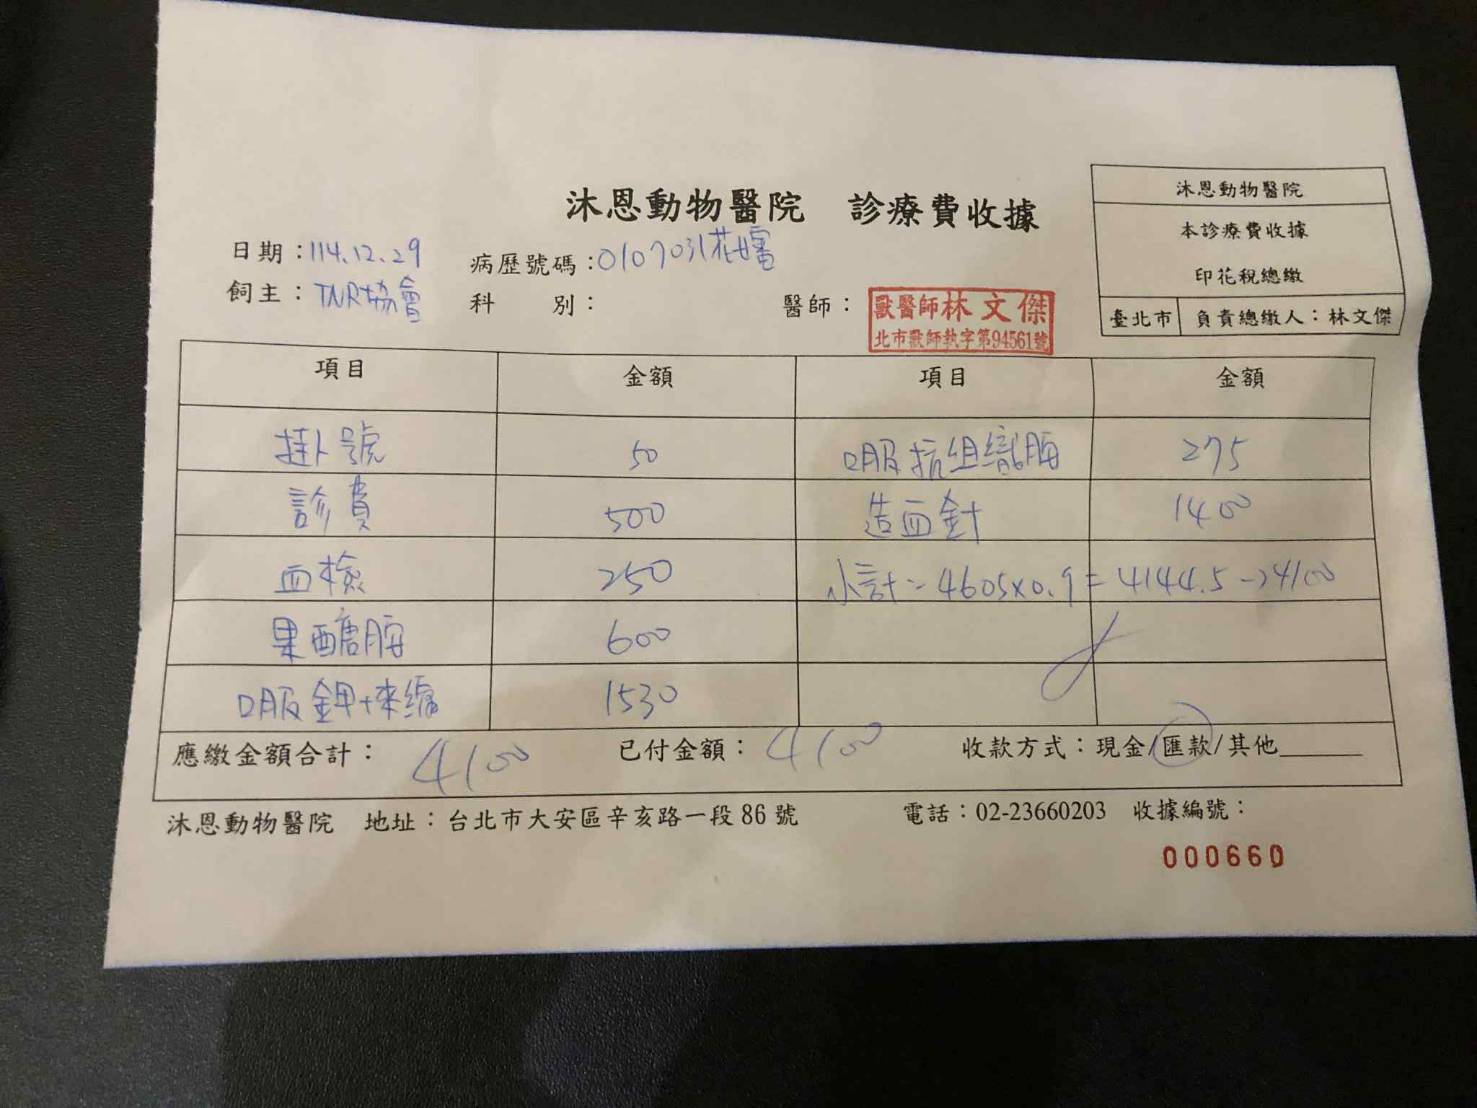 沐恩動物醫院　診療費收據
沐恩動物醫院
本診療費收據
印花稅總繳
臺北市 負責總繳人：林文傑
日期：114.12.29 病歷號碼：0107031花嬸
飼主：TNR協會 科　　別： 醫師： 獸醫師林文傑
北市獸師執字第94561號
項目 金額 項目 金額
掛號 50 口服抗組織胺 275
診費 500 造血針 1400
血檢 250 小計=4605x0.9=4144.5→4100
果醣胺 600
口服鉀+ 1530
應繳金額合計：4100 已付金額：4100 收款方式：現金/匯款/其他
沐恩動物醫院　地址：台北市大安區辛亥路一段86號 電話：02-23660203 收據編號：
000660